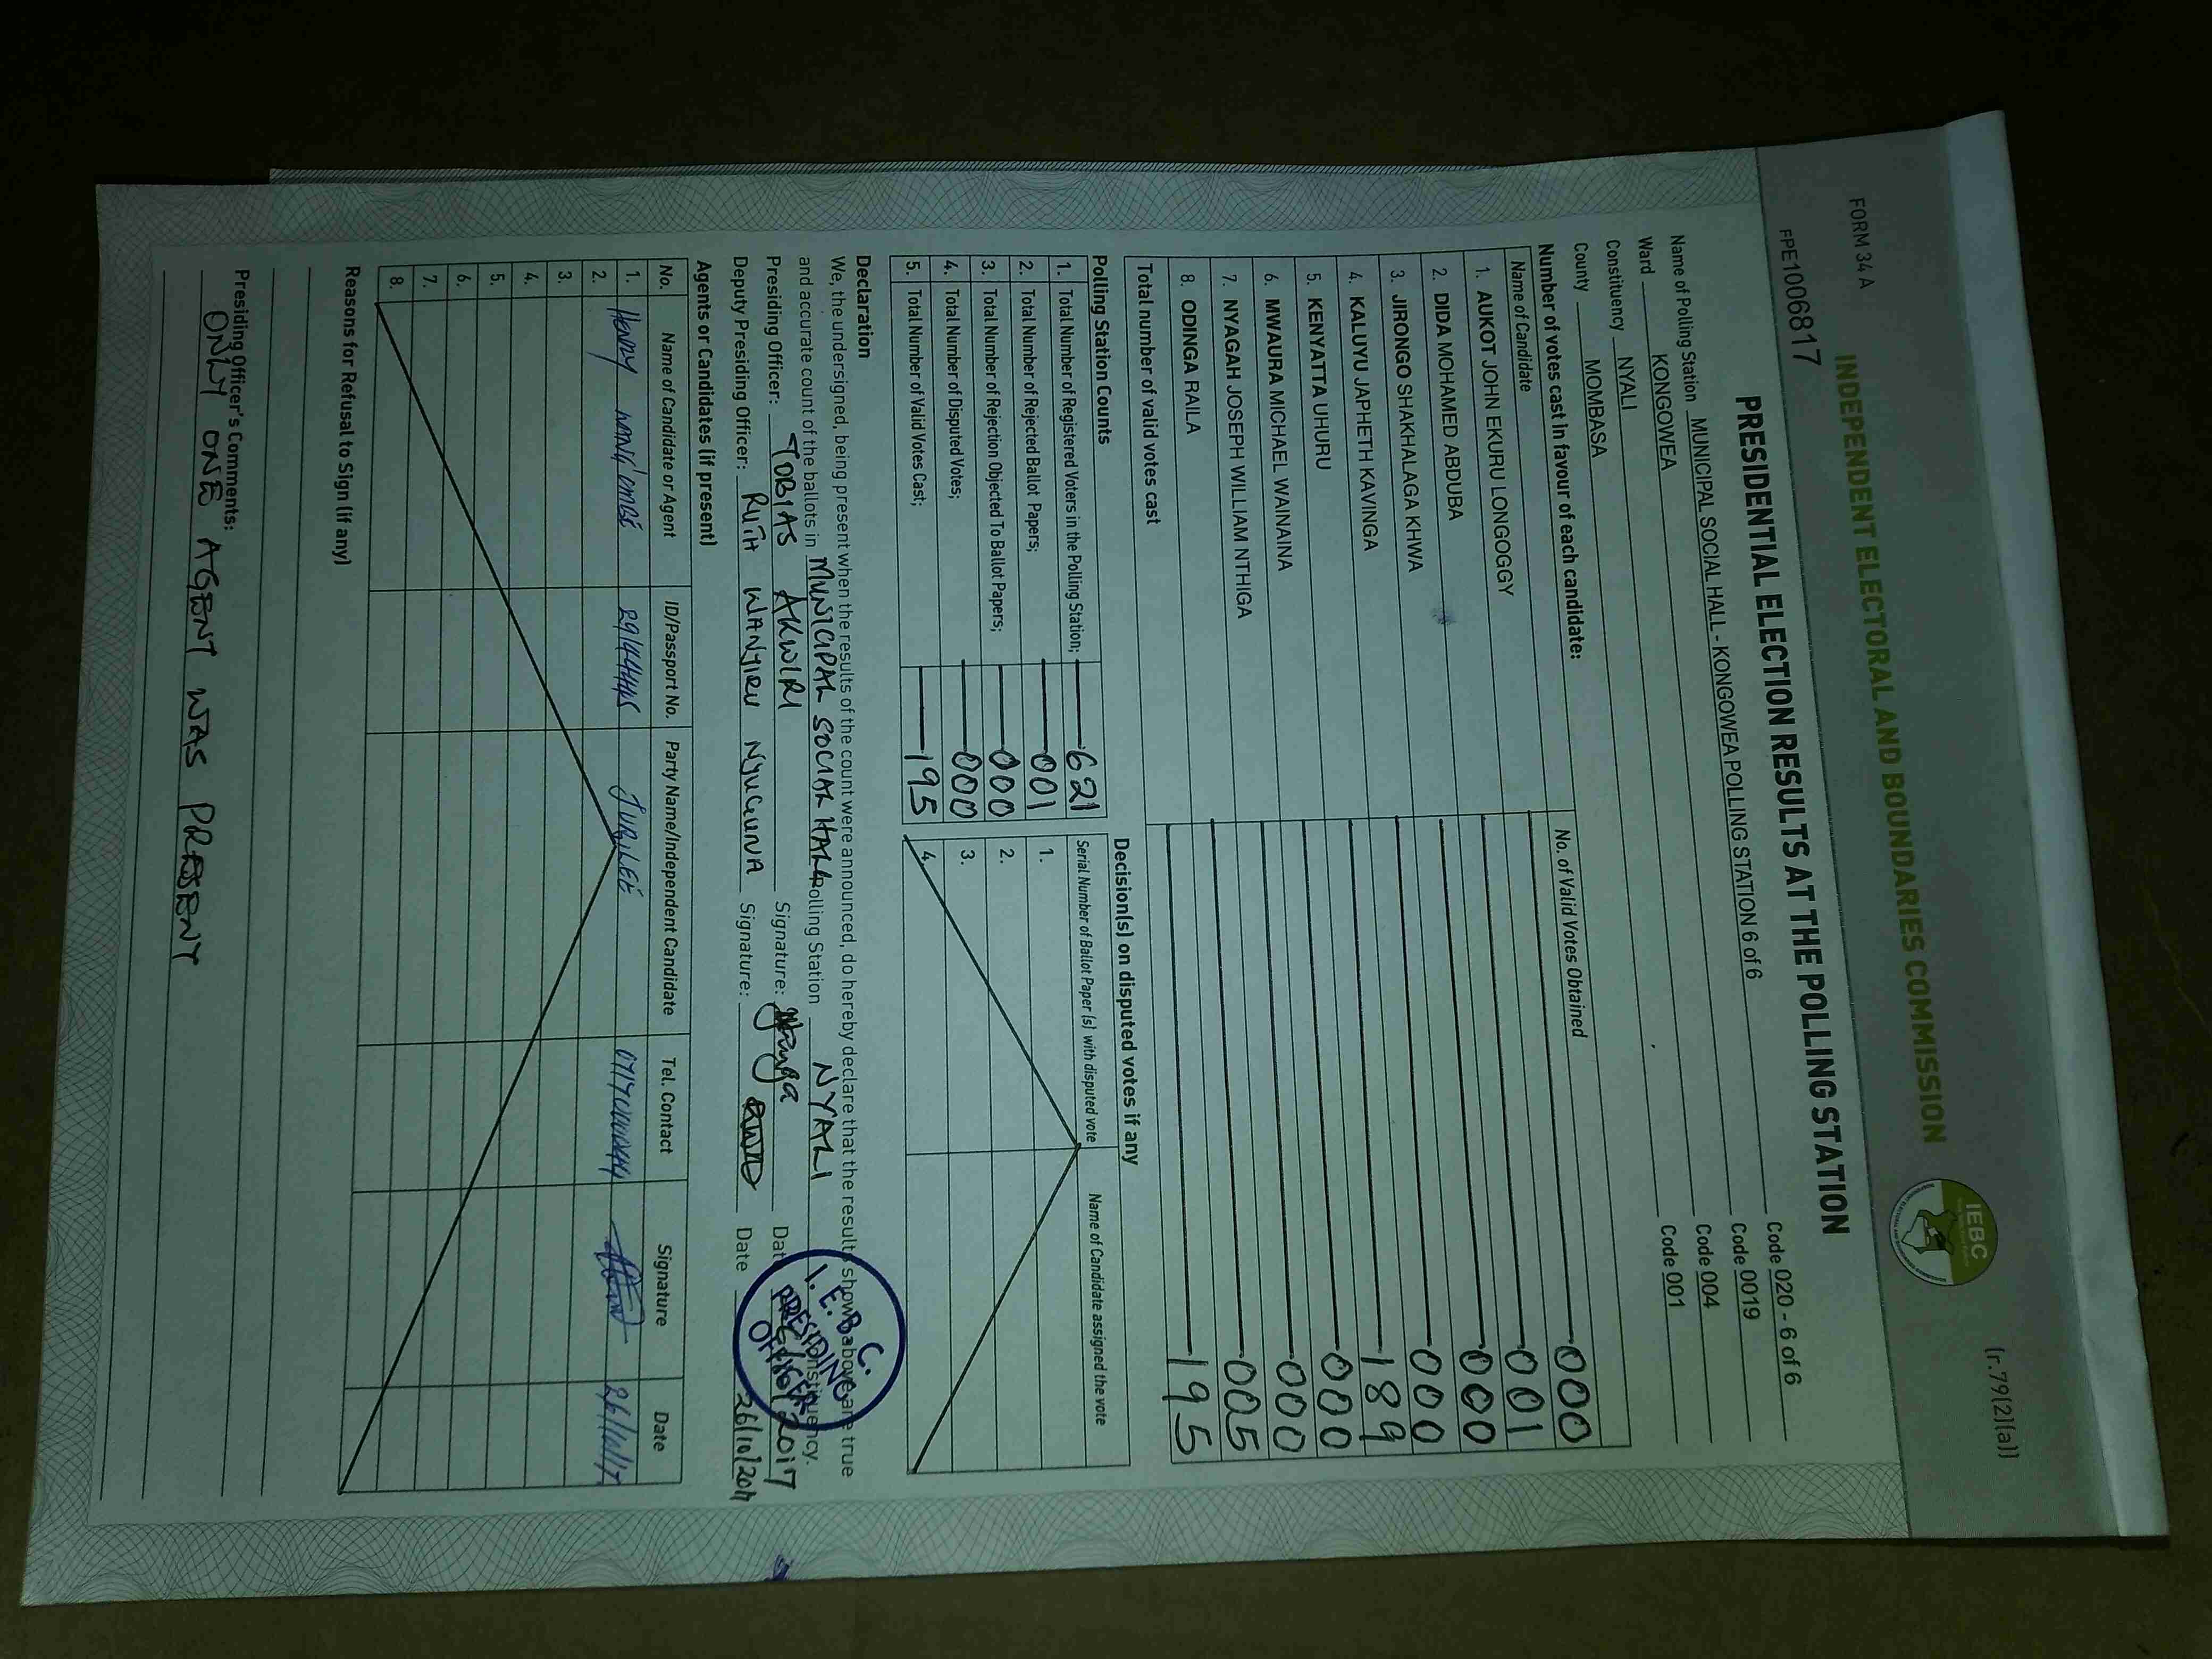 (r.79(2)(a))
FORM 34 A
INDEPENDENT ELECTORAL AND BOUNDARIES COMMISSION
IEBC
FPE1006817
PRESIDENTIAL ELECTION RESULTS AT THE POLLING STATION
Name of Polling Station MUNICIPAL SOCIAL HALL - KONGOWEA POLLING STATION 6 of 6 Code 020 - 6 of 6
Ward KONGOWEA Code 0019
Constituency NYALI Code 004
County MOMBASA Code 001
Number of votes cast in favour of each candidate:
Name of Candidate No. of Valid Votes Obtained
1. AUKOT JOHN EKURU LONGOGGY 000
2. DIDA MOHAMED ABDUBA 001
3. JIRONGO SHAKHALAGA KHWA 000
4. KALUYU JAPHETH KAVINGA 000
5. KENYATTA UHURU 189
6. MWAURA MICHAEL WAINAINA 000
7. NYAGAH JOSEPH WILLIAM NTHIGA 000
8. ODINGA RAILA 005
Total number of valid votes cast 195
Polling Station Counts
1. Total Number of Registered Voters in the Polling Station; 621
2. Total Number of Rejected Ballot Papers; 001
3. Total Number of Rejection Objected To Ballot Papers; 000
4. Total Number of Disputed Votes; 000
5. Total Number of Valid Votes Cast; 195
Decision(s) on disputed votes if any
Serial Number of Ballot Paper (s) with disputed vote Name of Candidate assigned the vote
1.
2.
3.
4.
Declaration
We, the undersigned, being present when the results of the count were announced, do hereby declare that the results shown above are true
and accurate count of the ballots in MUNICIPAL SOCIAL HALL Polling Station NYALI Constituency.
Presiding Officer: TOBIAS AKWIRI Signature: Date 26/10/2017
Deputy Presiding Officer: RUTH WANJIRU NJUGUNA Signature: Date 26/10/2017
I. E. B. C.
PRESIDING
OFFICER
Agents or Candidates (if present)
No. Name of Candidate or Agent ID/Passport No. Party Name/Independent Candidate Tel. Contact Signature Date
1. Henry JUBILEE 26/10/17
2.
3.
4.
5.
6.
7.
8.
Reasons for Refusal to Sign (if any)
Presiding Officer's Comments:
ONLY ONE AGENT WAS PRESENT